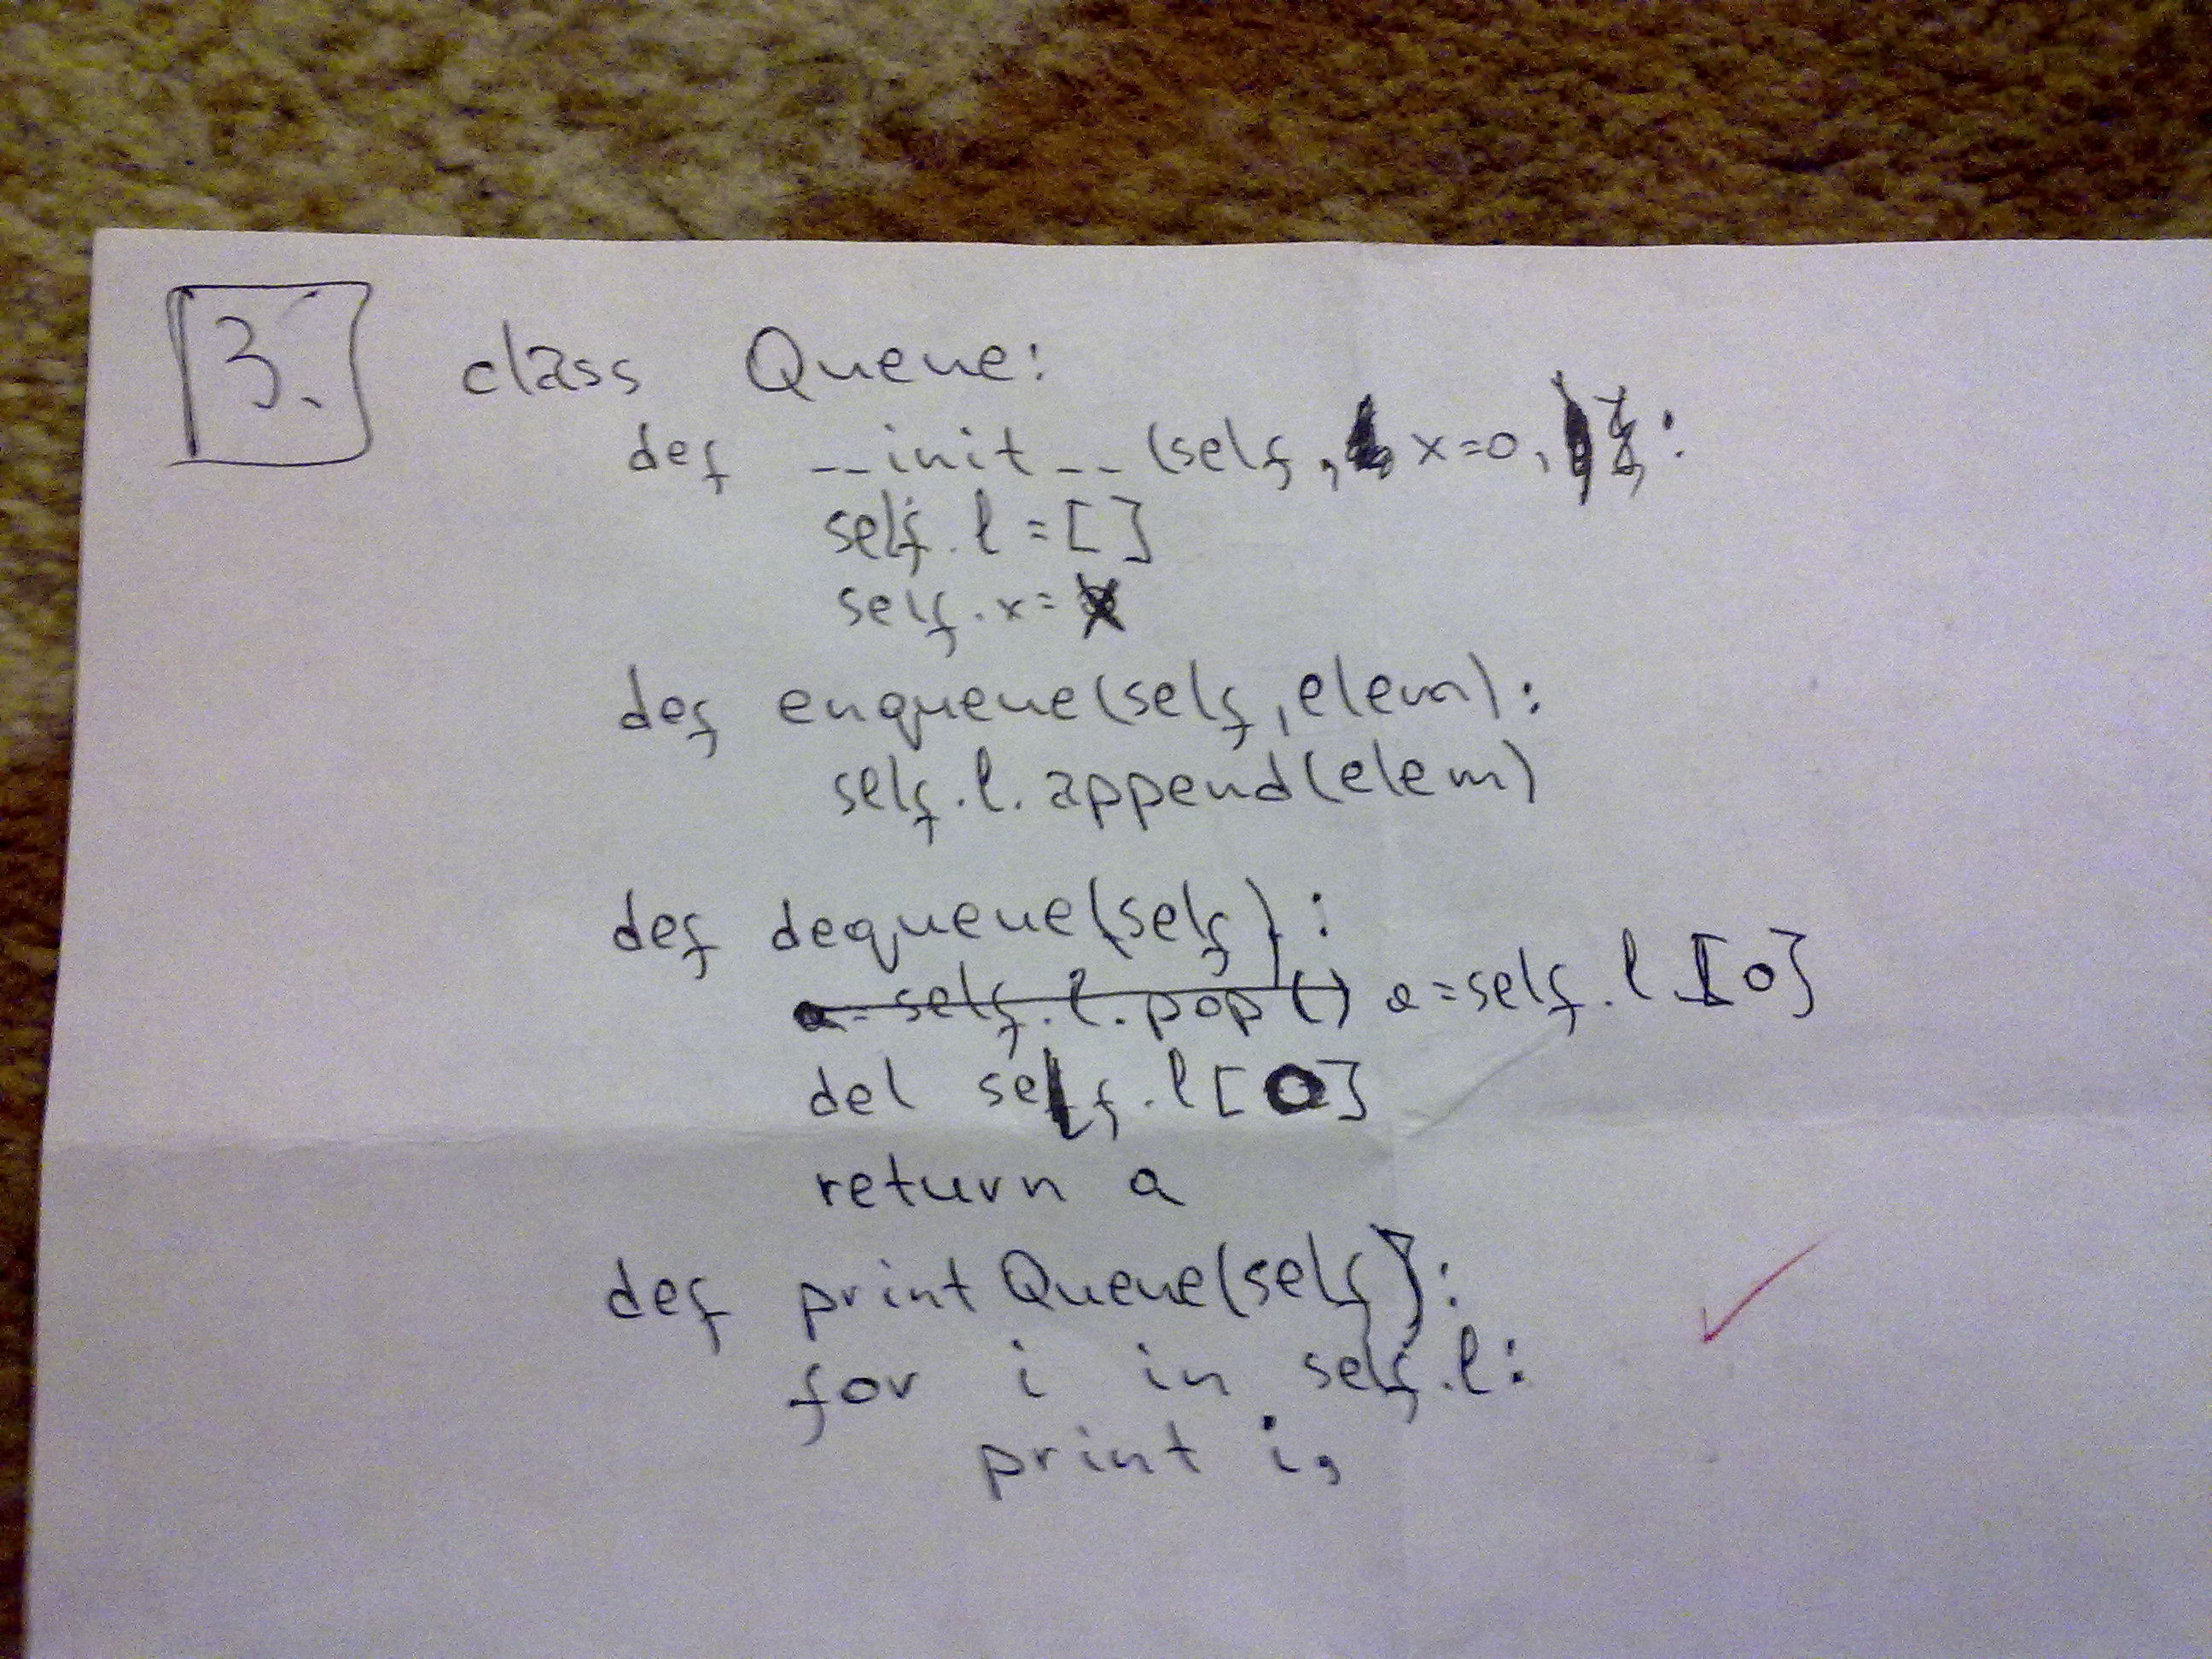 3. class Queue:
def __init__(self, x=0, :
self.l=[]
self.x=x
def enqueue(self,elem):
self.l.append(elem)
def dequeue(self):
a=self.l.pop() a=self.l[0]
del self.l[0]
return a
def printQueue(self):
for i in self.l:
print i,